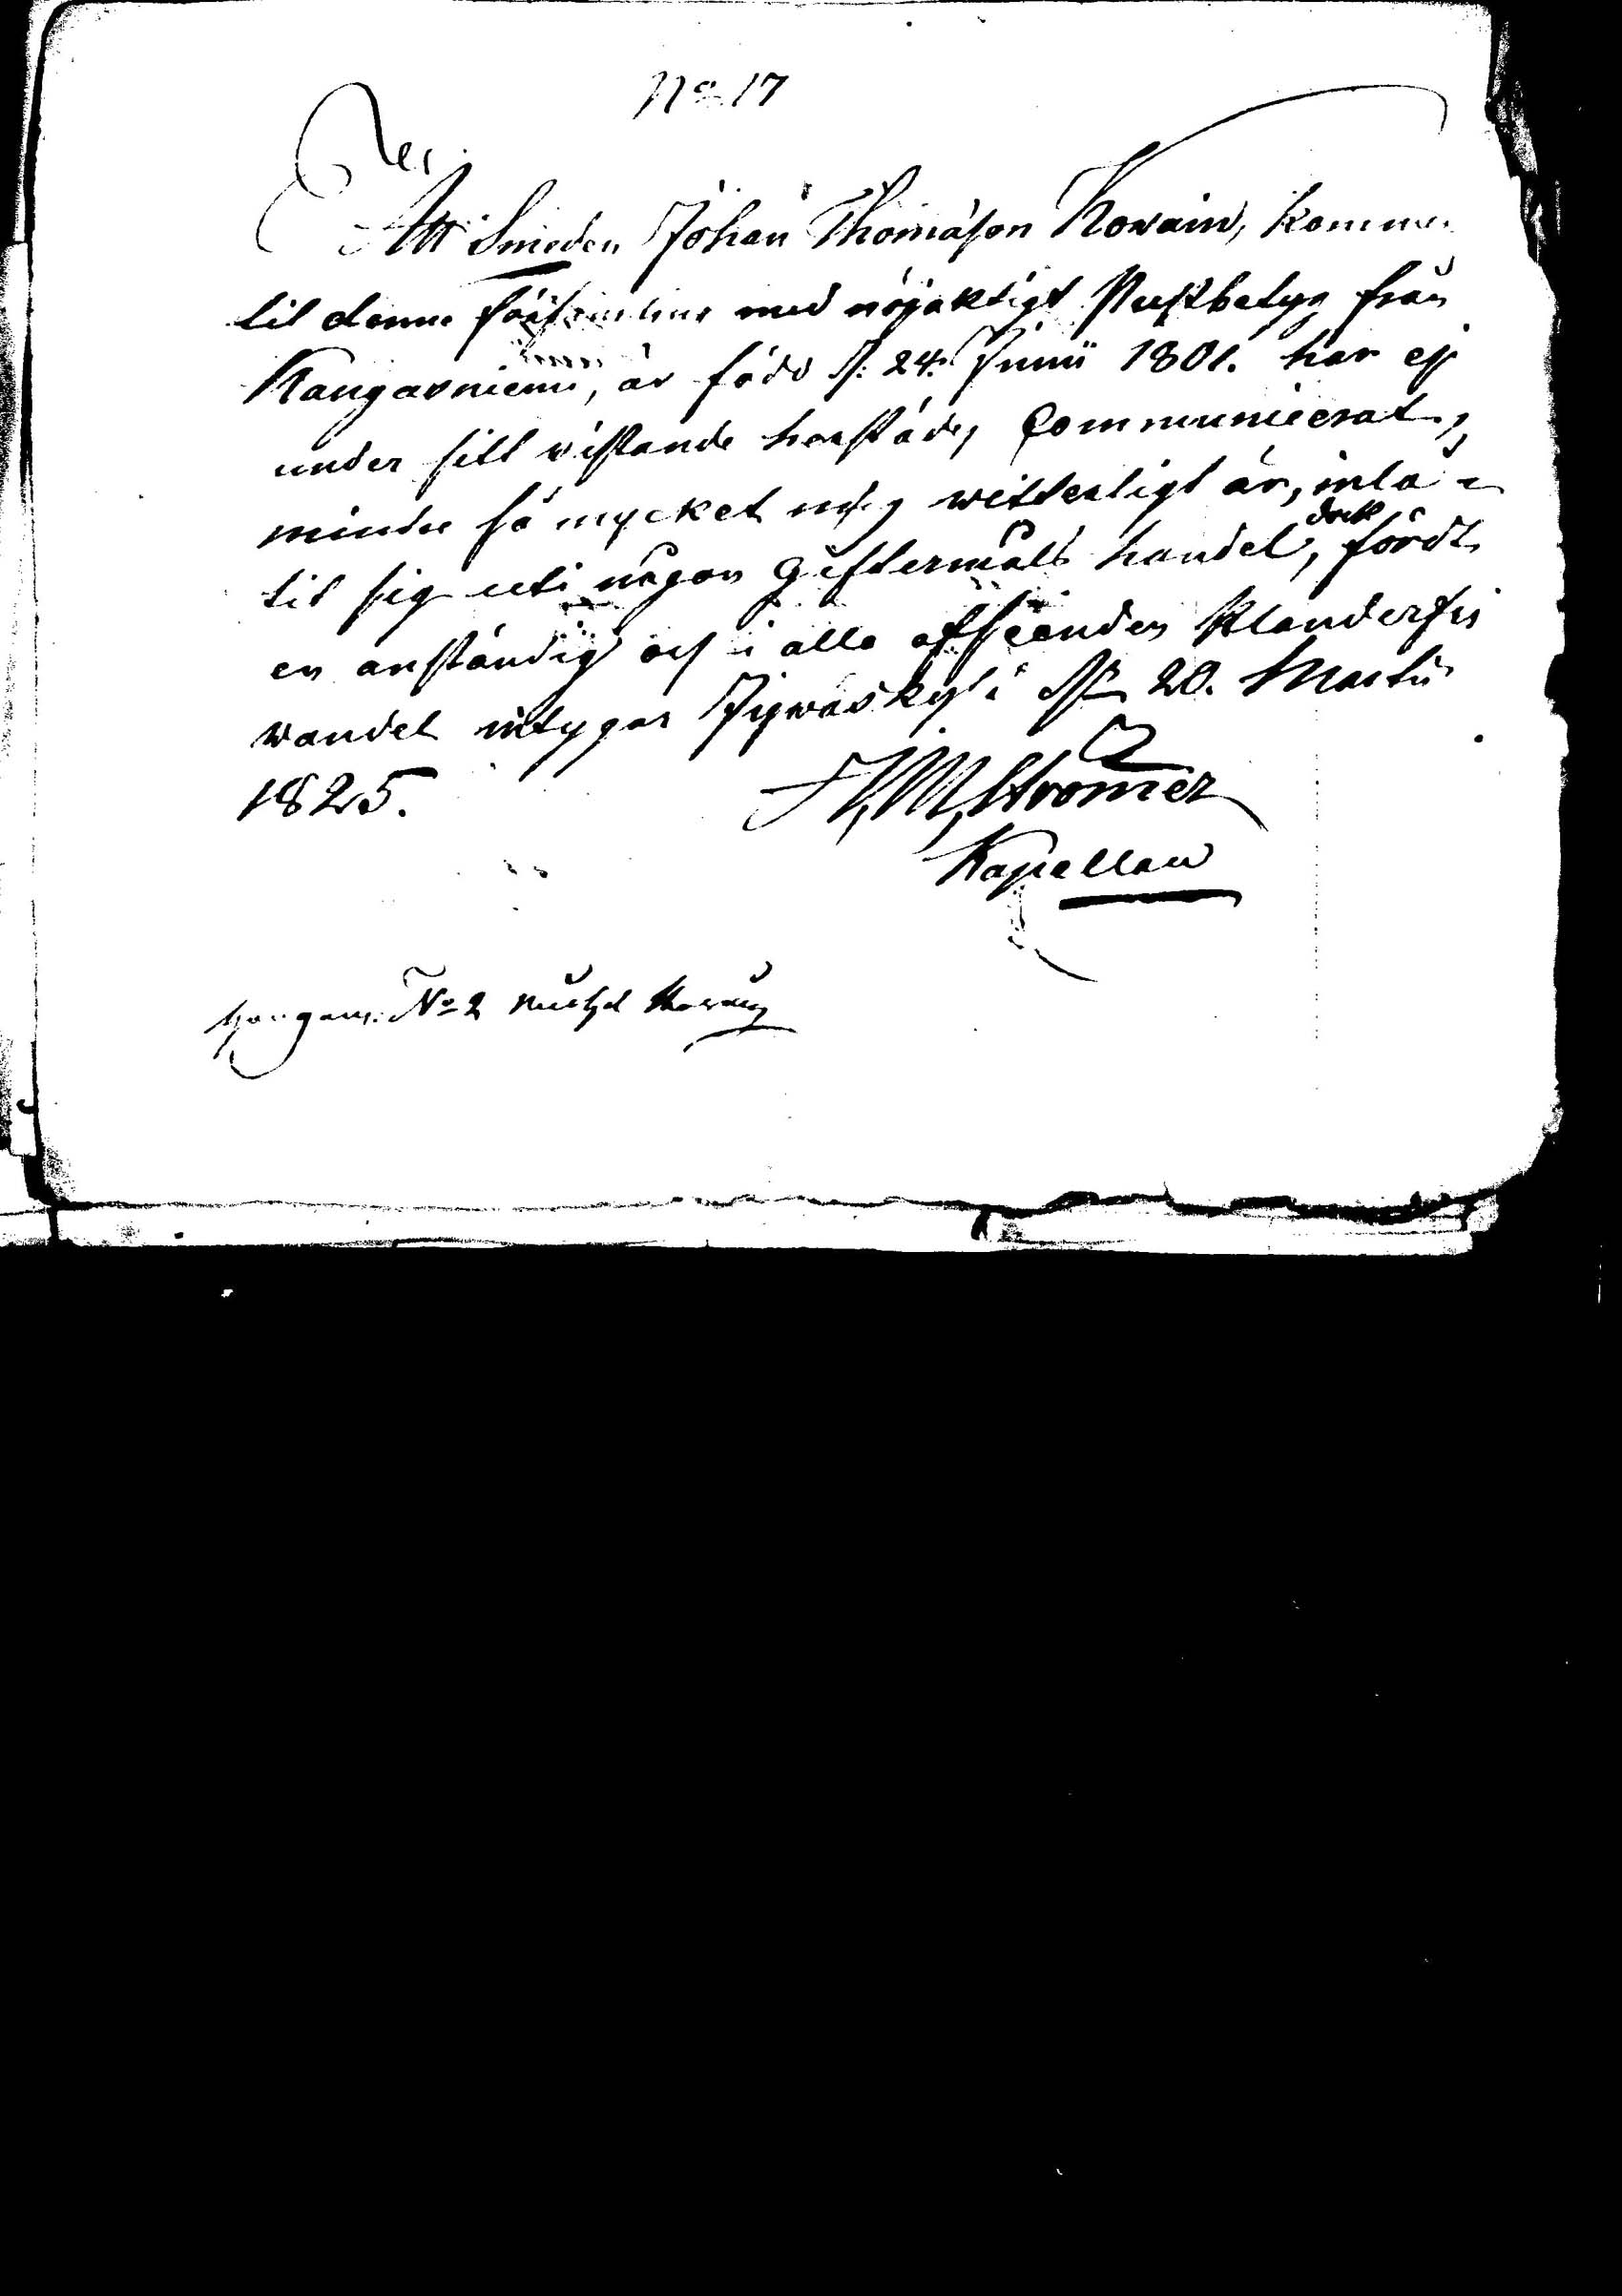 No. 17
Att Smeden Johan Thomasson Kowain, kommen
til denne församling med nöjaktigt Prestbetyg från
Kangasniemi, är född d. 24. Junii 1801. har ej
under sitt vistande härstädes Communicerat,
mindre så mycket mig witterligt är, inlå-
tit sig uti någon Giftermåls handel, dock fördt
en anständig och i alla afseenden klanderfri
wandel intygar Jywäskylä d. 20. Martii
1825.
Stromer
Kapellan
No 2